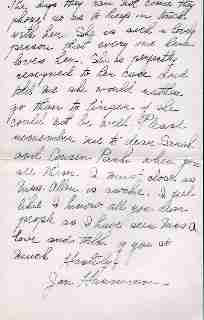 The days they can not come they
phone us are to keep in touch
with her. She is such a lovely
person that every one
loves her. She is perfectly
resigned to her case and
told me she would rather
go than to linger if she
could not be well. Please
remember me to dear Sarah
and Cousin Park when you
see them. I must close as
Miss Allen is awake. I feel
like I know all you dear
people as I have seen
love and talk of you so
much